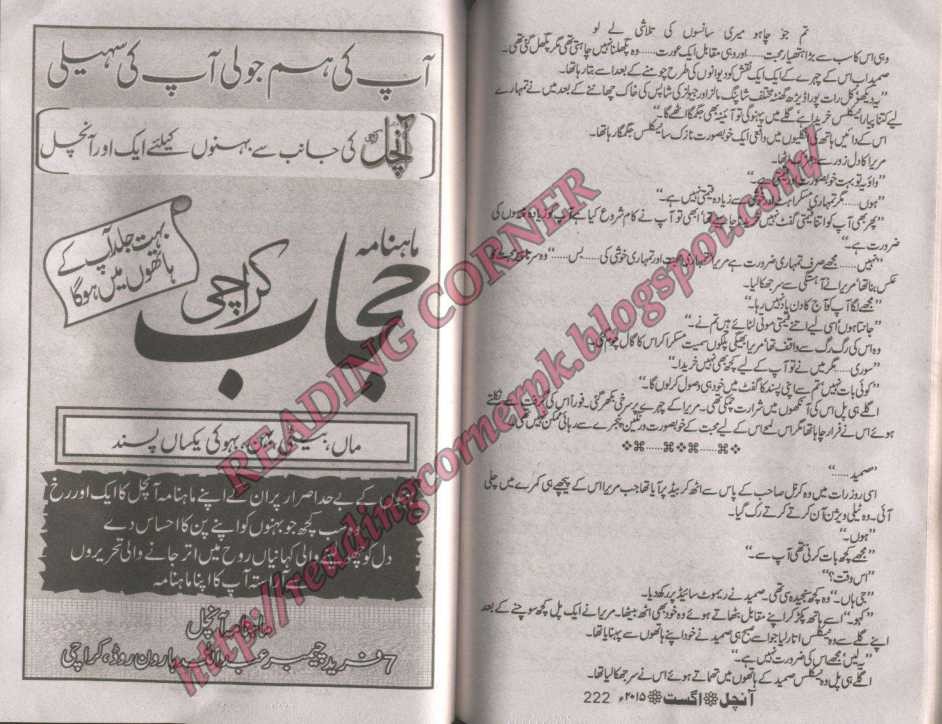 تم جو چاہو میری سانسوں کی تلاشی لے لو
وہی اس کا سب سے بڑا ہتھیار محبت...... اور وہی مقابل ایک عورت...... وہ پگھلنا نہیں چاہتی تھی مگر پگھل گئی تھی۔
صمید اب اس کے چہرے کے ایک ایک نقش کو دیوانوں کی طرح چومنے کے بعد اسے بتا رہا تھا۔
”یہ دیکھو کل رات پورا ڈیڑھ گھنٹہ مختلف شاپنگ مالز اور جیولرز کی شاپس کی خاک چھاننے کے بعد میں نے تمہارے
لیے کتنا پیارا نیکلس خریدا ہے گلے میں پہنوگی تو آئینہ بھی جگمگا اٹھے گا۔“
اس کے دائیں ہاتھ کی انگلیوں میں واقعی ایک خوبصورت نازک سا نیکلس جگمگا رہا تھا۔
مریرا کا دل زور سے دھڑک اٹھا۔
”واؤ یہ تو بہت خوبصورت اور قیمتی ہے۔“
”ہوں...... مگر تمہاری مسکراہٹ اور خوشی سے زیادہ قیمتی نہیں ہے۔“
”پھر بھی آپ کو اتنا قیمتی گفٹ نہیں خریدنا چاہیے تھا ابھی تو آپ نے کام شروع کیا ہے آپ کو زیادہ پیسوں کی
ضرورت ہے۔“
”نہیں...... مجھے صرف تمہاری ضرورت ہے مریرا تمہاری محبت اور تمہاری خوشی کی...... بس......“ وہ سرتاپا محبت کا
عکس بنا تھا مریرا نے آہستگی سے سر جھکا لیا۔
”مجھے لگا آپ کو آج کا دن یاد نہیں رہا۔“
”جانتا ہوں اسی لیے اتنے قیمتی موتی لٹائے ہیں تم نے۔“
وہ اس کی رگ رگ سے واقف تھا مریرا بھیگی پلکوں سمیت مسکرا کر اس کا گال چوم گئی۔
”سوری...... مگر میں نے تو آپ کے لیے کچھ بھی نہیں خریدا۔“
”کوئی بات نہیں تم سے اپنی پسند کا گفٹ میں خود ہی وصول کرلوں گا۔“
اگلے ہی پل اس کی آنکھوں میں شرارت چمکی تھی۔ مریرا کے چہرے پر سرخی بکھر گئی۔ فوراً اس کی گرفت سے نکلتے
ہوئے اس نے فرار چاہا تھا مگر اس لمحے اس کے لیے محبت کے خوبصورت و رنگین پنجرے سے رہائی ممکن نہیں تھی۔
”صمید......“
اسی روز رات میں وہ کرنل صاحب کے پاس سے اٹھ کر بیڈ پر آیا تھا جب مریرا اس کے پیچھے ہی کمرے میں چلی
آئی۔ وہ ٹیلی ویژن آن کرتے کرتے رک گیا۔
”ہوں۔“
”مجھے کچھ بات کرنی تھی آپ سے۔“
”اس وقت؟“
”جی ہاں۔“ وہ کچھ سنجیدہ سی تھی۔ صمید نے ریموٹ سائیڈ پر رکھ دیا۔
”کہو۔“ اسے ہاتھ پکڑ کر اپنے مقابل بٹھاتے ہوئے وہ خود بھی اٹھ بیٹھا۔ مریرا نے ایک پل کچھ سوچنے کے بعد
اپنے گلے سے وہ نیکلس اتار لیا جو اسے صبح ہی صمید نے خود اپنے ہاتھوں سے پہنایا تھا۔
”یہ لیں، مجھے اس کی ضرورت نہیں ہے۔“
اگلے ہی پل وہ نیکلس صمید کے ہاتھوں میں تھماتے ہوئے اس نے سر جھکا لیا تھا۔
آنچل اگست ۲۰۱۵ء 222
آپ کی ہم جولی آپ کی سہیلی
آنچل کی جانب سے بہنوں کیلئے ایک اور آنچل
بہت جلد آپ کے
ہاتھوں میں ہوگا
ماہنامہ
حجاب کراچی
ماں، بیٹی، بہن، بہو کی یکساں پسند
بہنوں کے بے حد اصرار پر ان کے اپنے ماہنامہ آنچل کا ایک اور رخ
سب کچھ جو بہنوں کو اپنے پن کا احساس دے
دل کو چھو لینے والی کہانیاں روح میں اتر جانے والی تحریروں
سے آراستہ آپ کا اپنا ماہنامہ
ماہنامہ آنچل
7 فرید چیمبر عبداللہ ہارون روڈ، کراچی
READING CORNER
http://readingcornerpk.blogspot.com/